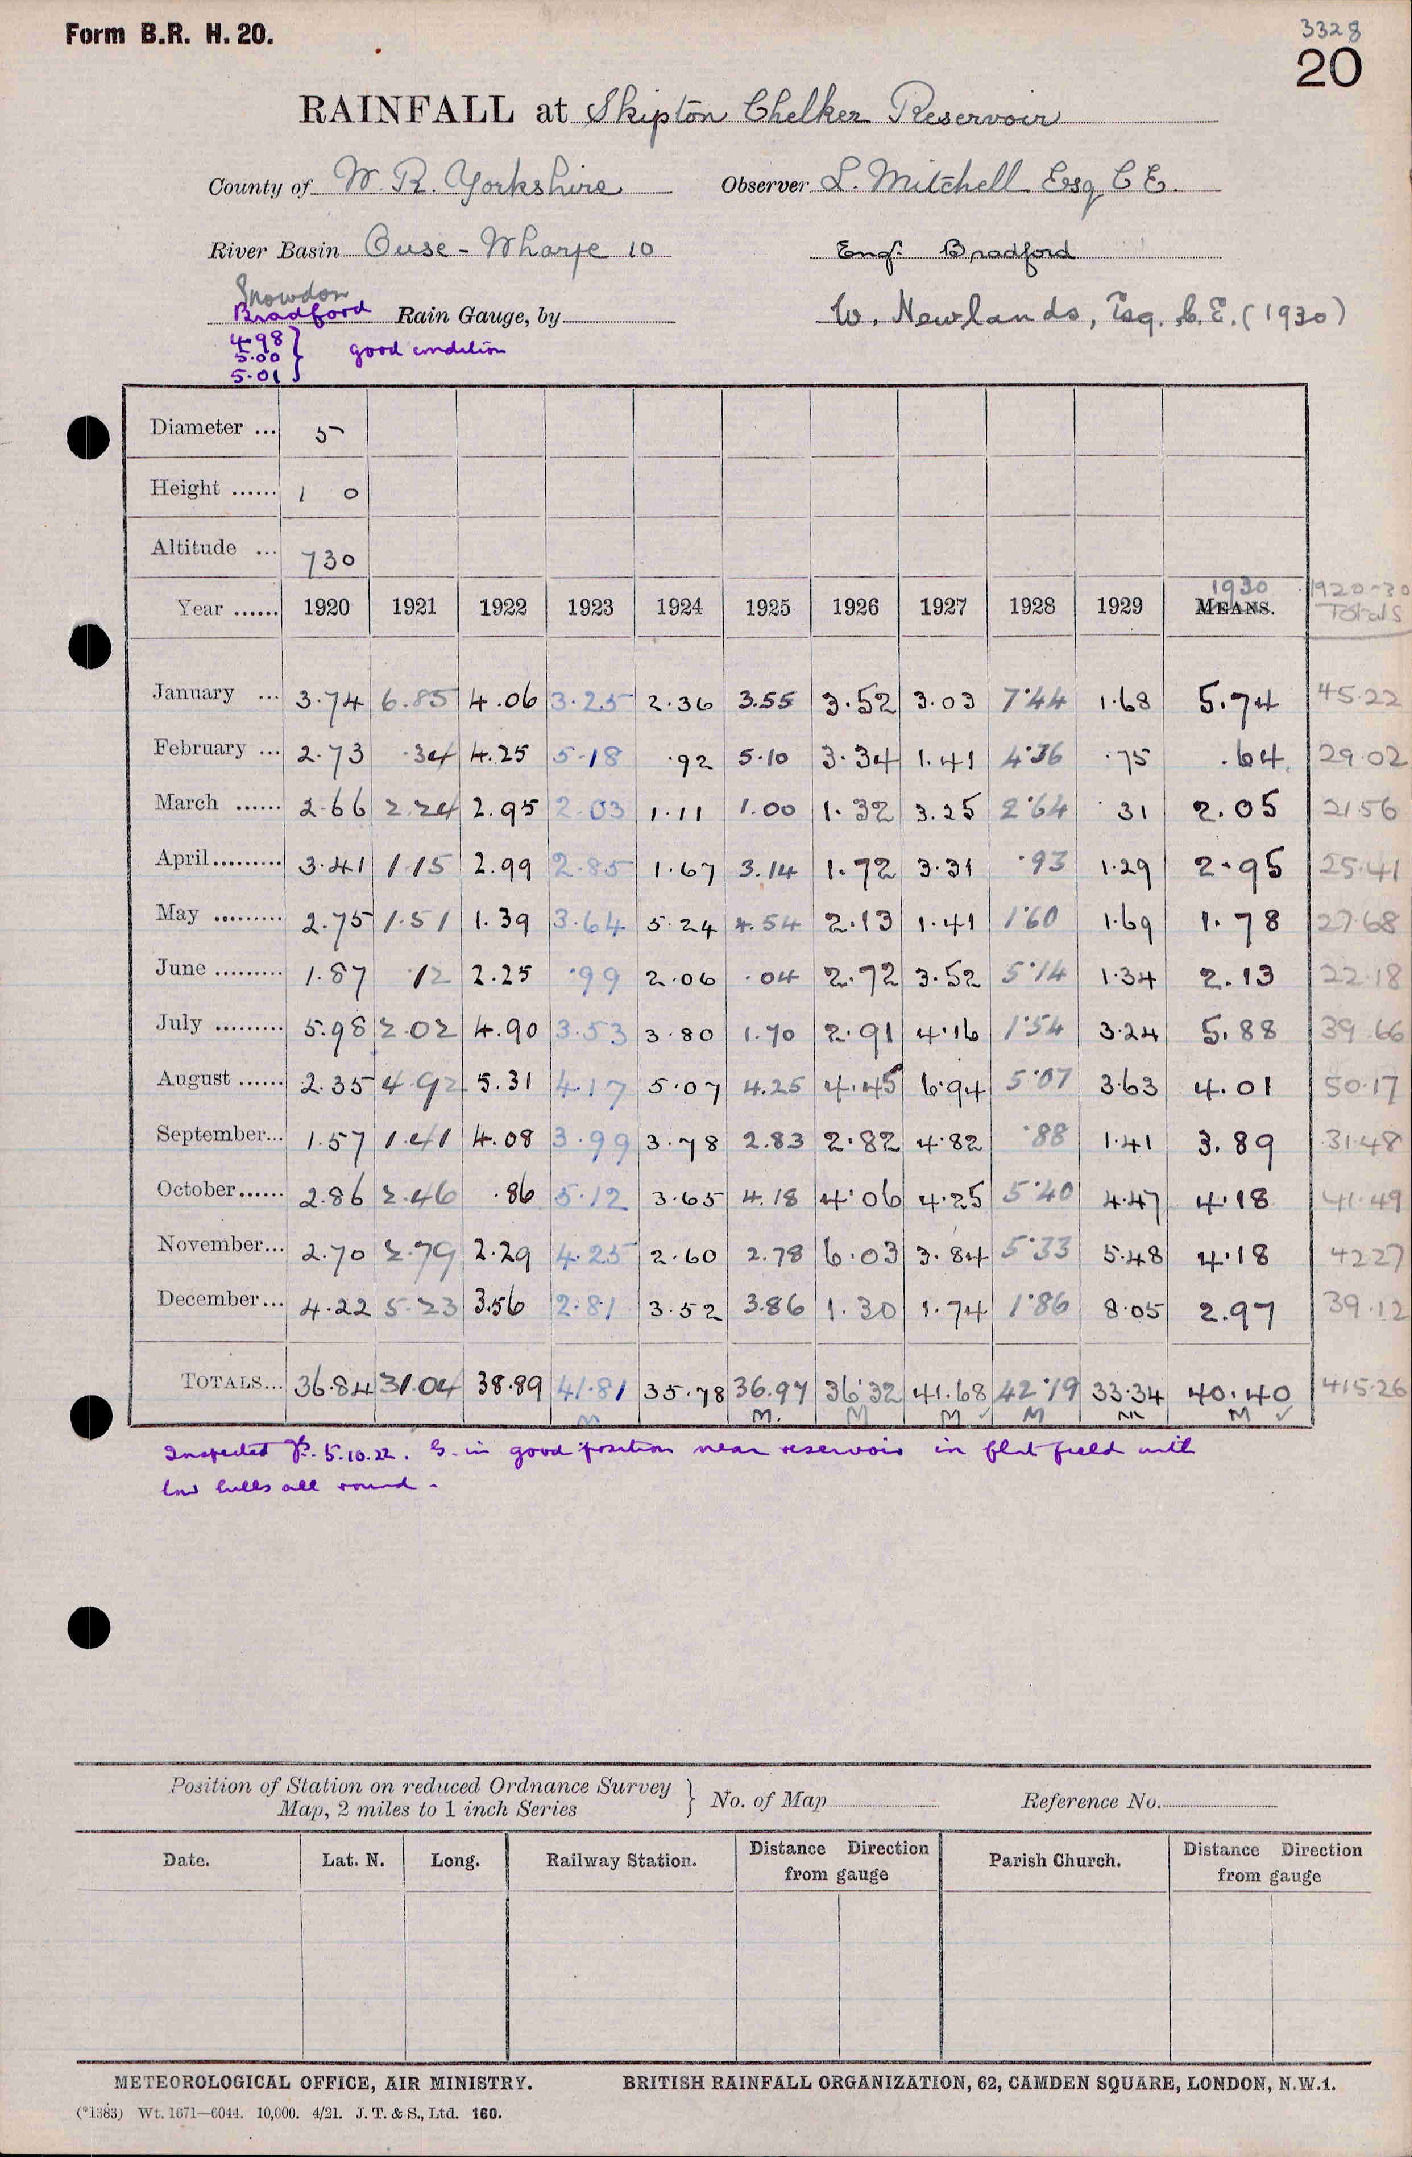 Form B.R. H. 20.
3328
20
RAINFALL at Skipton Chelker Reservoir
County of W. R. Yorkshire Observer L. Mitchell Esq C E.
River Basin Ouse - Wharfe 10 Engr. Bradford
Snowdon
Bradford Rain Gauge, by W. Newlands, Esq. C.E. (1930)
4.98
5.00 } good condition
5.01
Diameter ... 5
Height ...... 1 0
Altitude ... 730
1930 1920-30
Year ...... 1920 1921 1922 1923 1924 1925 1926 1927 1928 1929 MEANS. Totals
January ... 3.74 6.85 4.06 3.25 2.36 3.55 3.52 3.03 7.44 1.68 5.74 45.22
February ... 2.73 .34 4.25 5.18 .92 5.10 3.34 1.41 4.36 .75 .64 29.02
March ...... 2.66 2.24 2.95 2.03 1.11 1.00 1.32 3.25 2.64 31 2.05 21.56
April......... 3.41 1.15 2.99 2.85 1.67 3.14 1.72 3.31 .93 1.29 2.95 25.41
May ......... 2.75 1.51 1.39 3.64 5.24 4.54 2.13 1.41 1.60 1.69 1.78 27.68
June ......... 1.87 .12 2.25 .99 2.06 .04 2.72 3.52 5.14 1.34 2.13 22.18
July ......... 5.98 2.02 4.90 3.53 3.80 1.70 2.91 4.16 1.54 3.24 5.88 39.66
August ...... 2.35 4.92 5.31 4.17 5.07 4.25 4.45 6.94 5.07 3.63 4.01 50.17
September... 1.57 1.41 4.08 3.99 3.78 2.83 2.82 4.82 .88 1.41 3.89 31.48
October...... 2.86 2.46 .86 5.12 3.65 4.18 4.06 4.25 5.40 4.47 4.18 41.49
November... 2.70 2.79 2.29 4.25 2.60 2.78 6.03 3.84 5.33 5.48 4.18 42.27
December... 4.22 5.23 3.56 2.81 3.52 3.86 1.30 1.74 1.86 8.05 2.97 39.12
TOTALS... 36.84 31.04 38.89 41.81 35.78 36.97 36.32 41.68 42.19 33.34 40.40 415.26
M M. M M ✓ M M M ✓
Inspected 5.10.22. G. in good position near reservoir in flat field with
low hills all round.
Position of Station on reduced Ordnance Survey
Map, 2 miles to 1 inch Series } No. of Map Reference No.
Date. Lat. N. Long. Railway Station. Distance Direction from gauge Parish Church. Distance Direction from gauge
METEOROLOGICAL OFFICE, AIR MINISTRY. BRITISH RAINFALL ORGANIZATION, 62, CAMDEN SQUARE, LONDON, N.W.1.
(*1383) Wt. 1671—6044. 10,000. 4/21. J. T. & S., Ltd. 160.